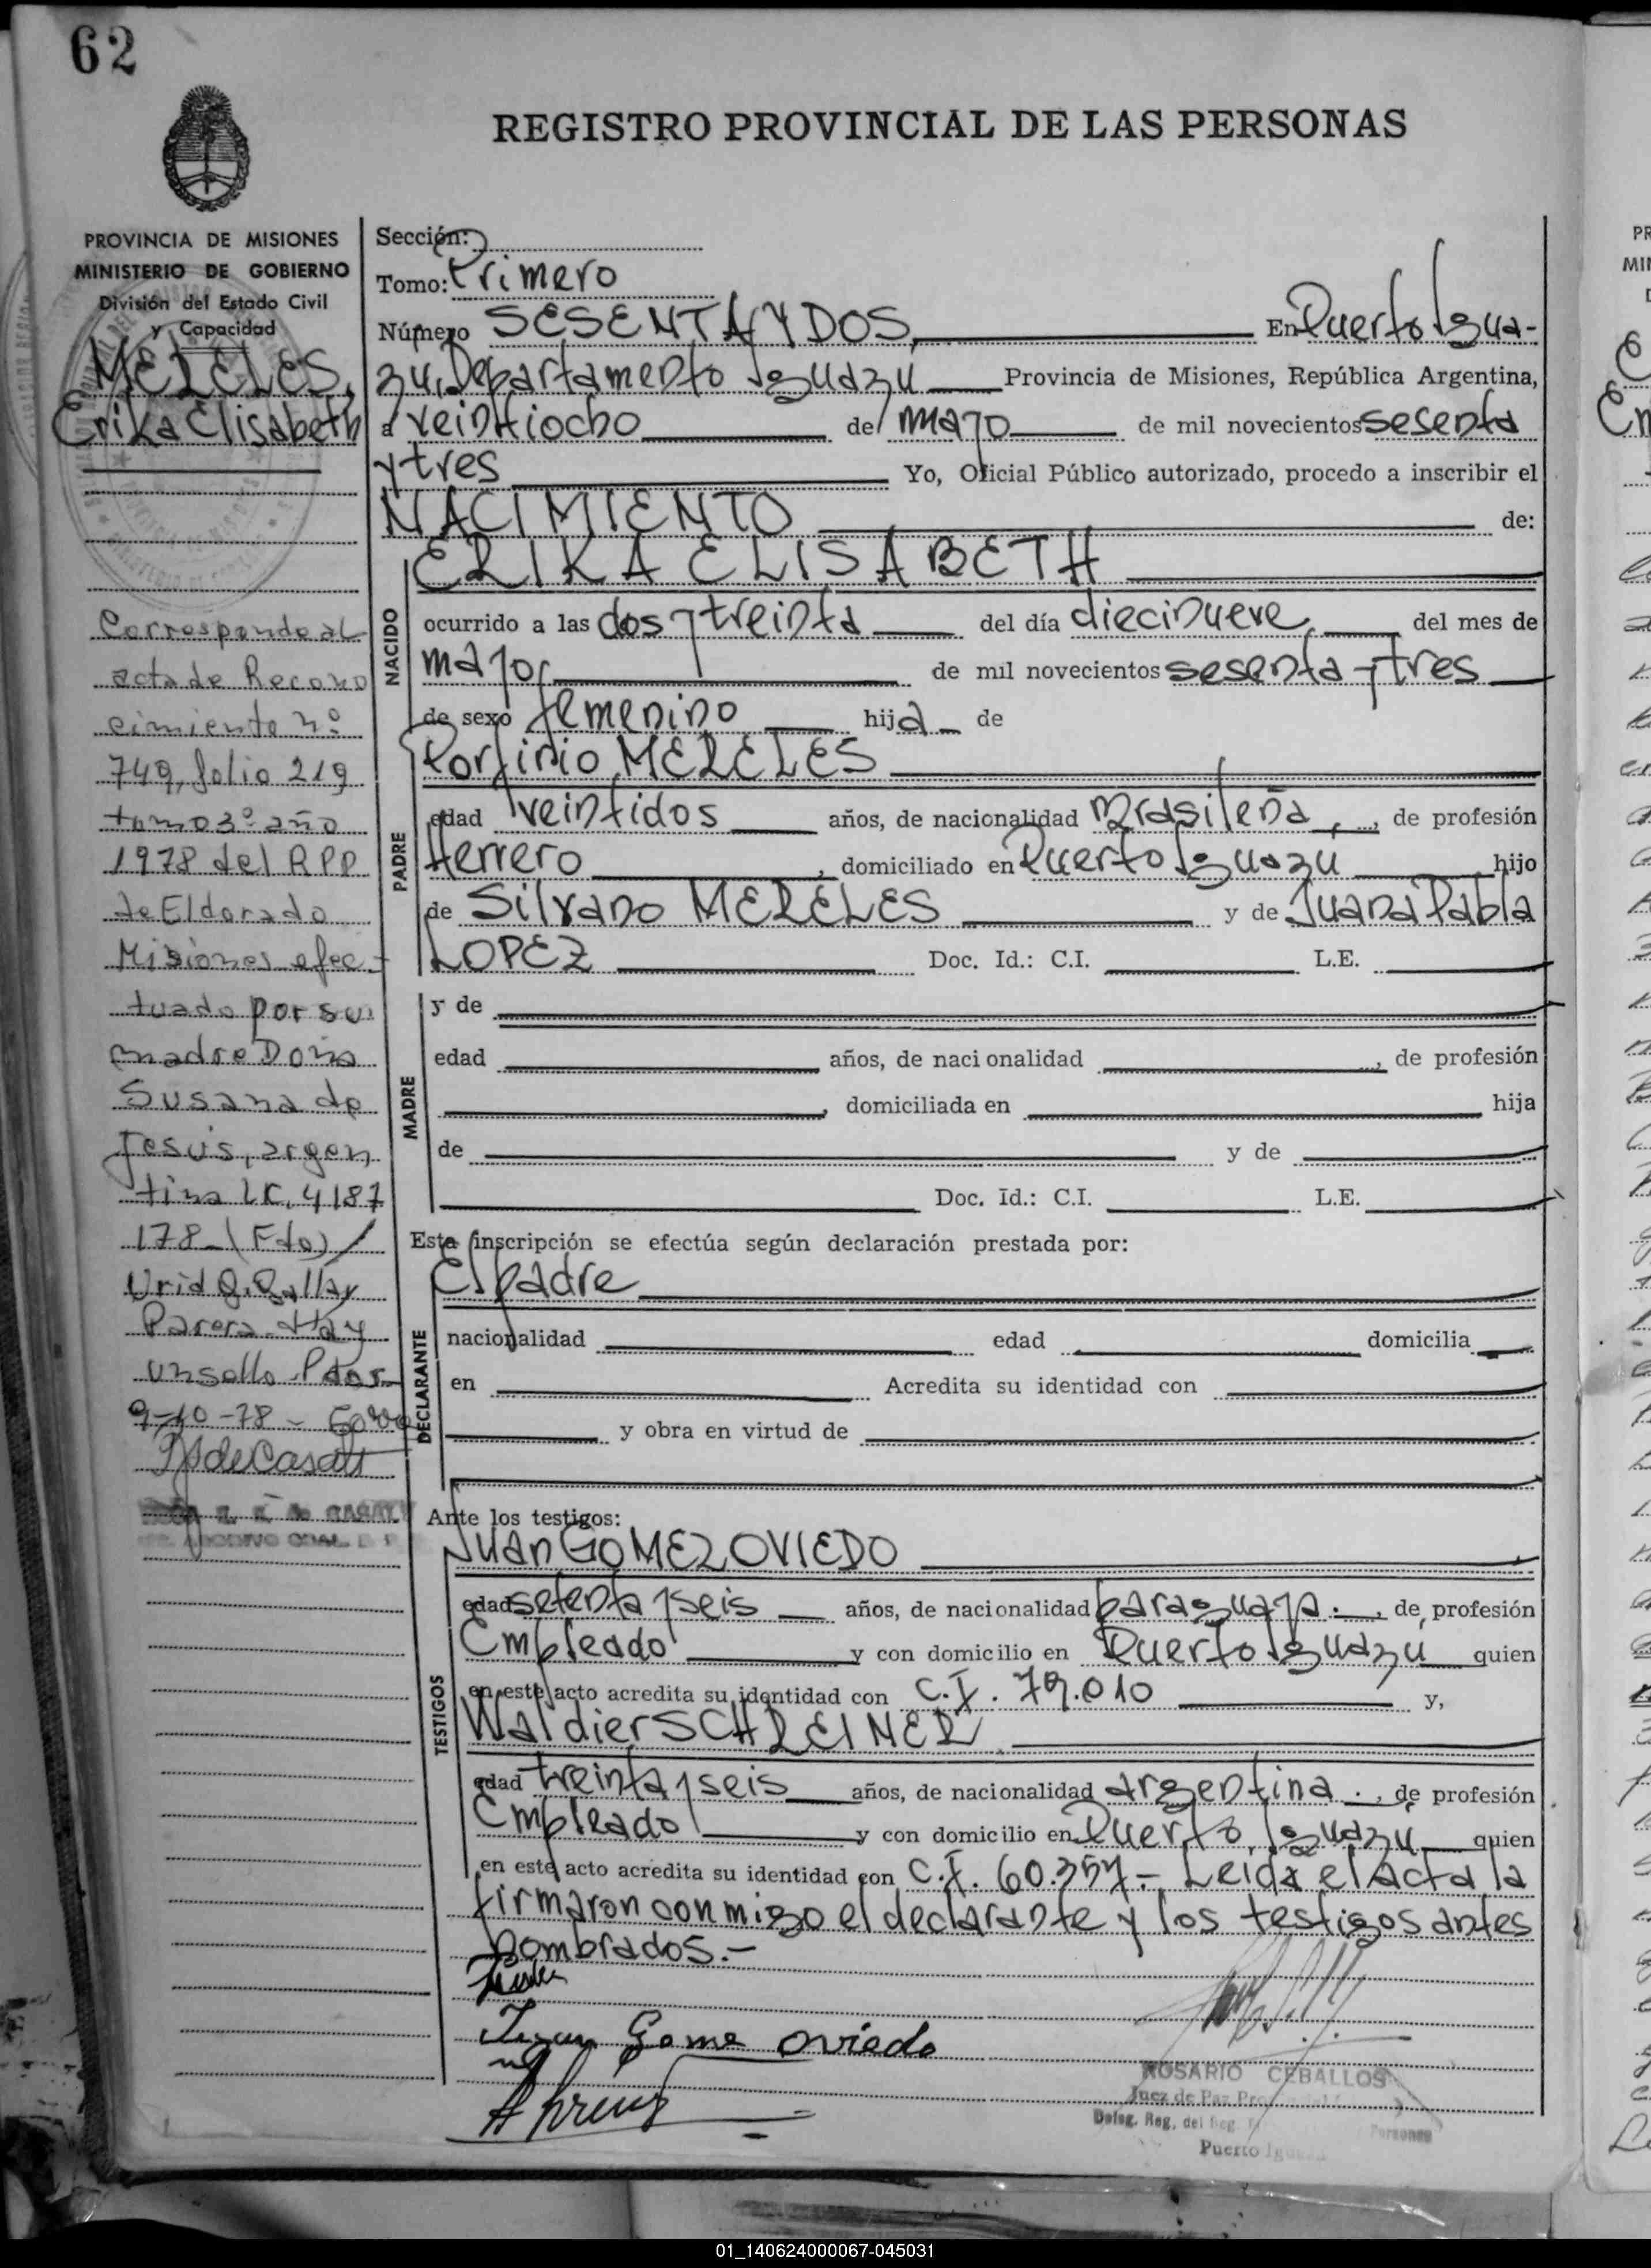 62
REGISTRO PROVINCIAL DE LAS PERSONAS
PROVINCIA DE MISIONES
MINISTERIO DE GOBIERNO
División del Estado Civil
y Capacidad
MERELES,
Erika Elisabeth
Corresponde al
acta de Recono
cimiento nº
749, folio 219
tomo 3º año
1978 del RPP
de Eldorado
Misiones efec-
tuado por su
madre Doña
Susana de
Jesús, argen
tina LC. 4187
178_(Fdo)
Parera. Hay
un sello. Pdas
9-10-78
Sección:
Tomo: Primero
Número SESENTA Y DOS, En Puerto Igua-
zú, Departamento Iguazú Provincia de Misiones, República Argentina,
a veintiocho de mayo de mil novecientos sesenta
y tres Yo, Oficial Público autorizado, procedo a inscribir el
NACIMIENTO de:
NACIDO
ERIKA ELISABETH
ocurrido a las dos y treinta del día diecinueve, del mes de
mayo, de mil novecientos sesenta y tres
de sexo femenino hija de
PADRE
Porfirio MERELES
edad veintidos años, de nacionalidad Brasileña, de profesión
Herrero, domiciliado en Puerto Iguazú hijo
de Silvano MERELES y de Juana Pabla
LOPEZ Doc. Id.: C.I. L.E.
MADRE
y de
edad años, de nacionalidad , de profesión
, domiciliada en hija
de y de
Doc. Id.: C.I. L.E.
Esta inscripción se efectúa según declaración prestada por:
DECLARANTE
El padre
nacionalidad edad domicilia
en Acredita su identidad con
y obra en virtud de
Ante los testigos:
TESTIGOS
Juan GOMEZ OVIEDO
edad setenta y seis años, de nacionalidad paraguaya., de profesión
Empleado y con domicilio en Puerto Iguazú quien
en este acto acredita su identidad con C.I. 79.010 y,
Waldier SCHREINER
edad treinta y seis años, de nacionalidad argentina., de profesión
Empleado y con domicilio en Puerto Iguazú quien
en este acto acredita su identidad con C.I. 60.357.- Leida el acta la
firmaron conmigo el declarante y los testigos antes
nombrados.-
Juan Gome oviedo
ROSARIO CEBALLOS
Juez de Paz
Deleg. Reg. del Reg. Personas
Puerto Iguazú
01_140624000067-045031